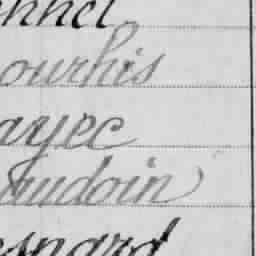 onnel
ourhis
ayec
audoin
esnard